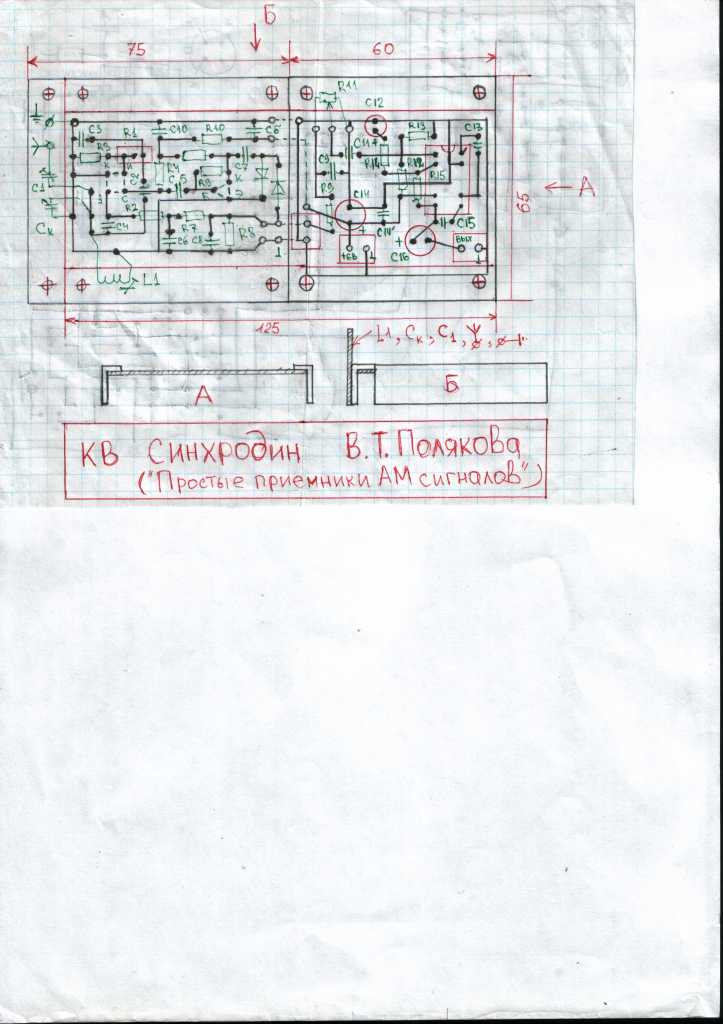 Б
75
60
R11
C12
C3
R1
C10
R10
C6
C11
R13
C13
R3
R4
C9
R12
R15
C1
C5
R9
C14
Cк
R2
R7
R8
C15
C4
C6
C8
1
+
C16
ВЫХ
+6В
1
L1
65
А
125
L1, Cк, C1,
А
Б
КВ СИНХРОДИН В.Т.Полякова
("Простые приемники АМ сигналов")